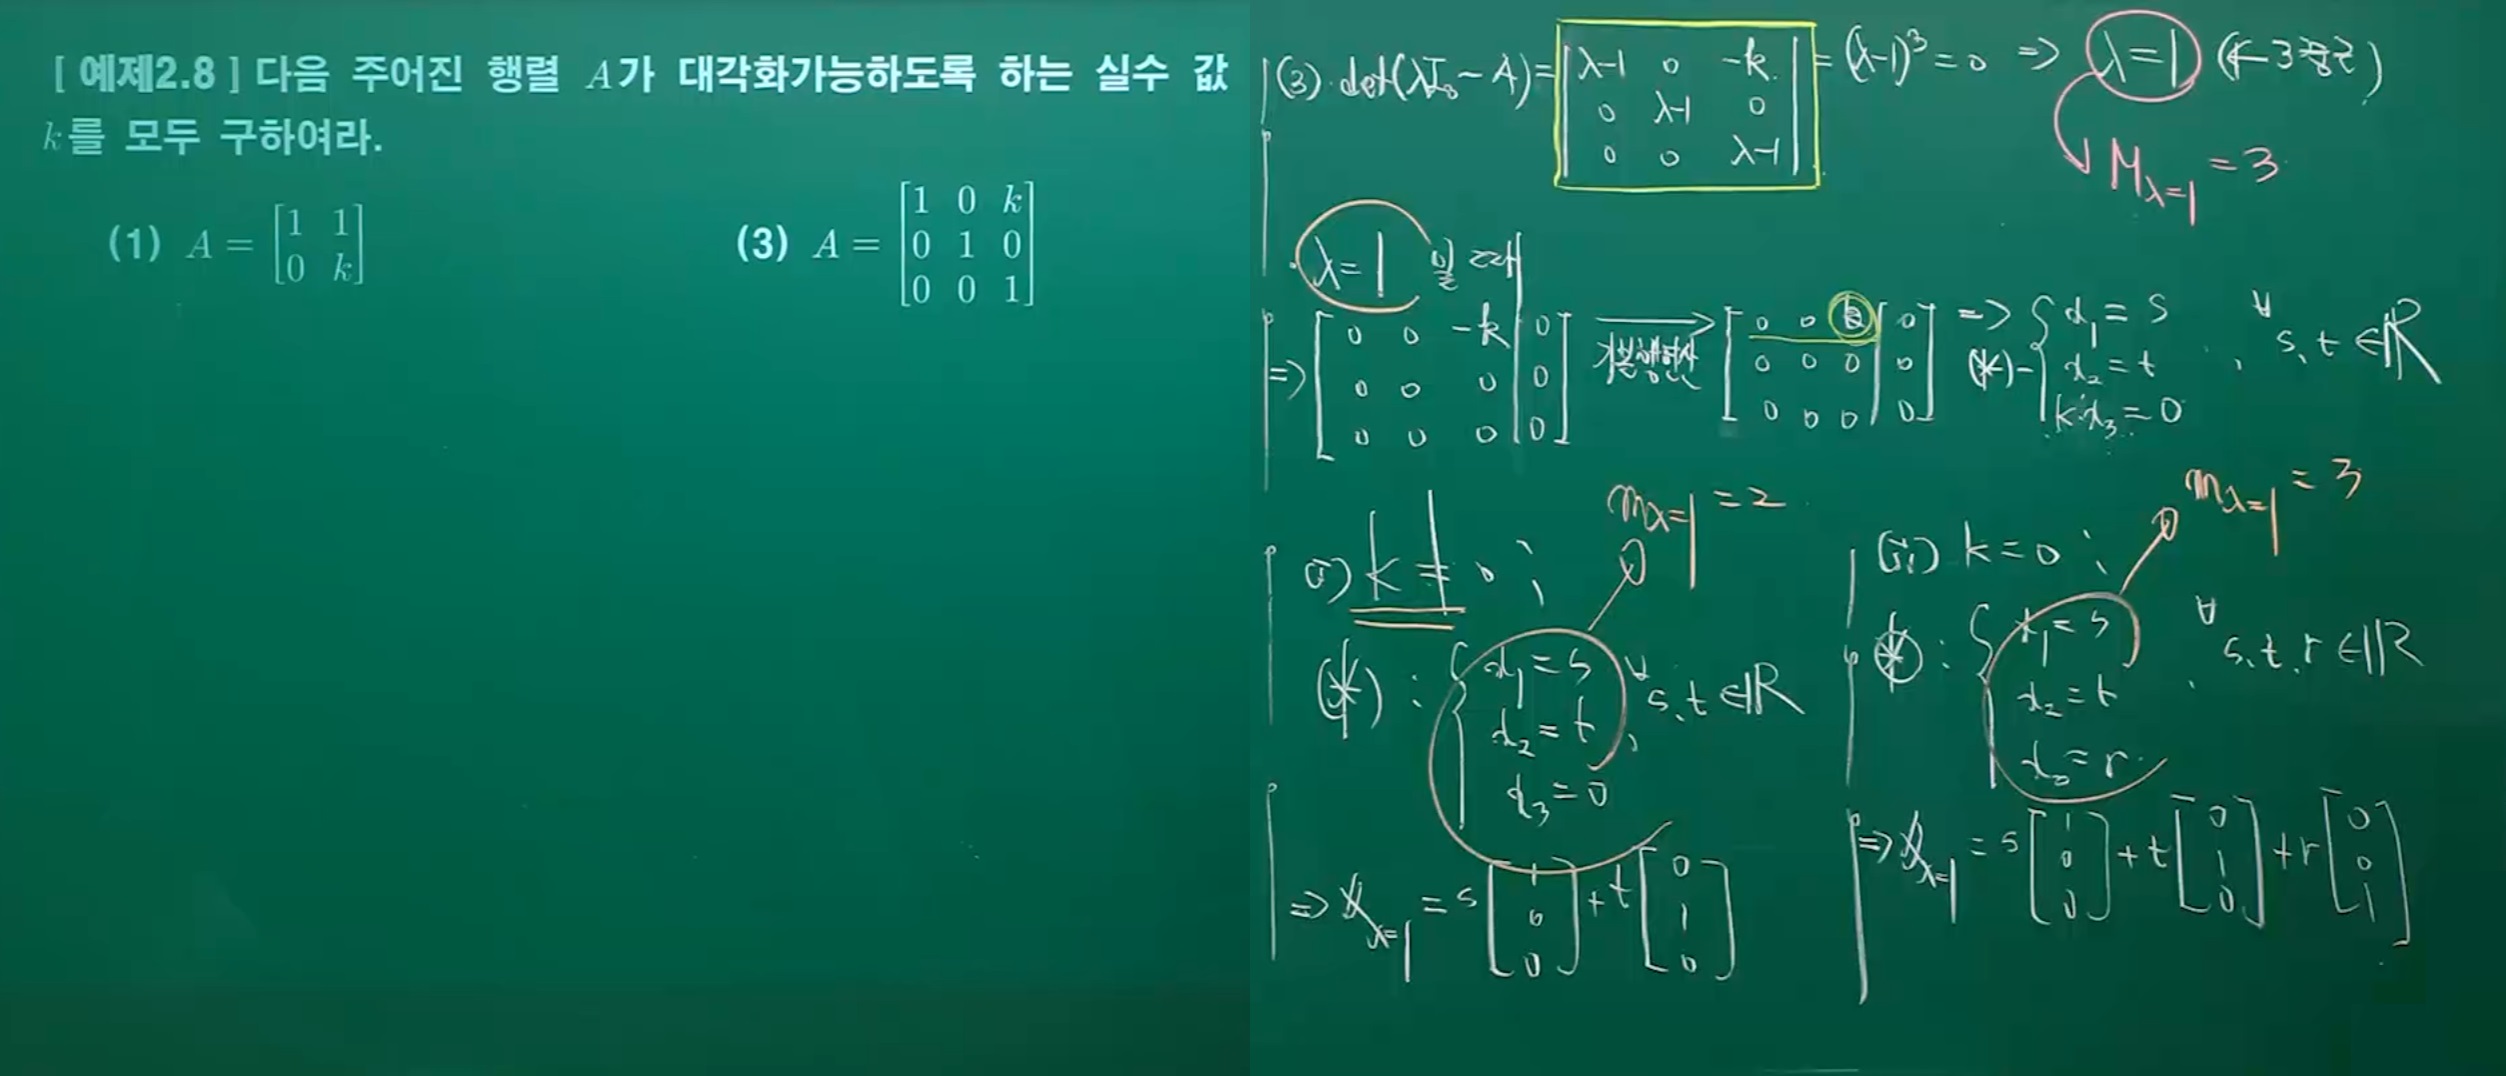 [ 예제2.8 ] 다음 주어진 행렬 A가 대각화가능하도록 하는 실수 값
k를 모두 구하여라.
(1) A = [1 1
0 k]
(3) A = [1 0 k
0 1 0
0 0 1]
(3). det(λI₃ - A) = |λ-1 0 -k
0 λ-1 0
0 0 λ-1| = (λ-1)³ = 0 => λ=1 (← 3중근)
M_{λ=1} = 3
λ=1 일 때
=> [0 0 -k | 0
0 0 0 | 0
0 0 0 | 0]
→ 기본행연산
[0 0 k | 0
0 0 0 | 0
0 0 0 | 0]
=> (*) - { x₁ = s
x₂ = t
k·x₃ = 0
, ∀s, t ∈ ℝ
(i) k ≠ 0 ;
m_{λ=1} = 2
(*) : { x₁ = s
x₂ = t
x₃ = 0
, ∀s, t ∈ ℝ
=> 𝕏_{λ=1} = s [1
0
0] + t [0
1
0]
(ii) k = 0 ;
m_{λ=1} = 3
(*) : { x₁ = s
x₂ = t
x₃ = r
, ∀s, t, r ∈ ℝ
=> 𝕏_{λ=1} = s [1
0
0] + t [0
1
0] + r [0
0
1]